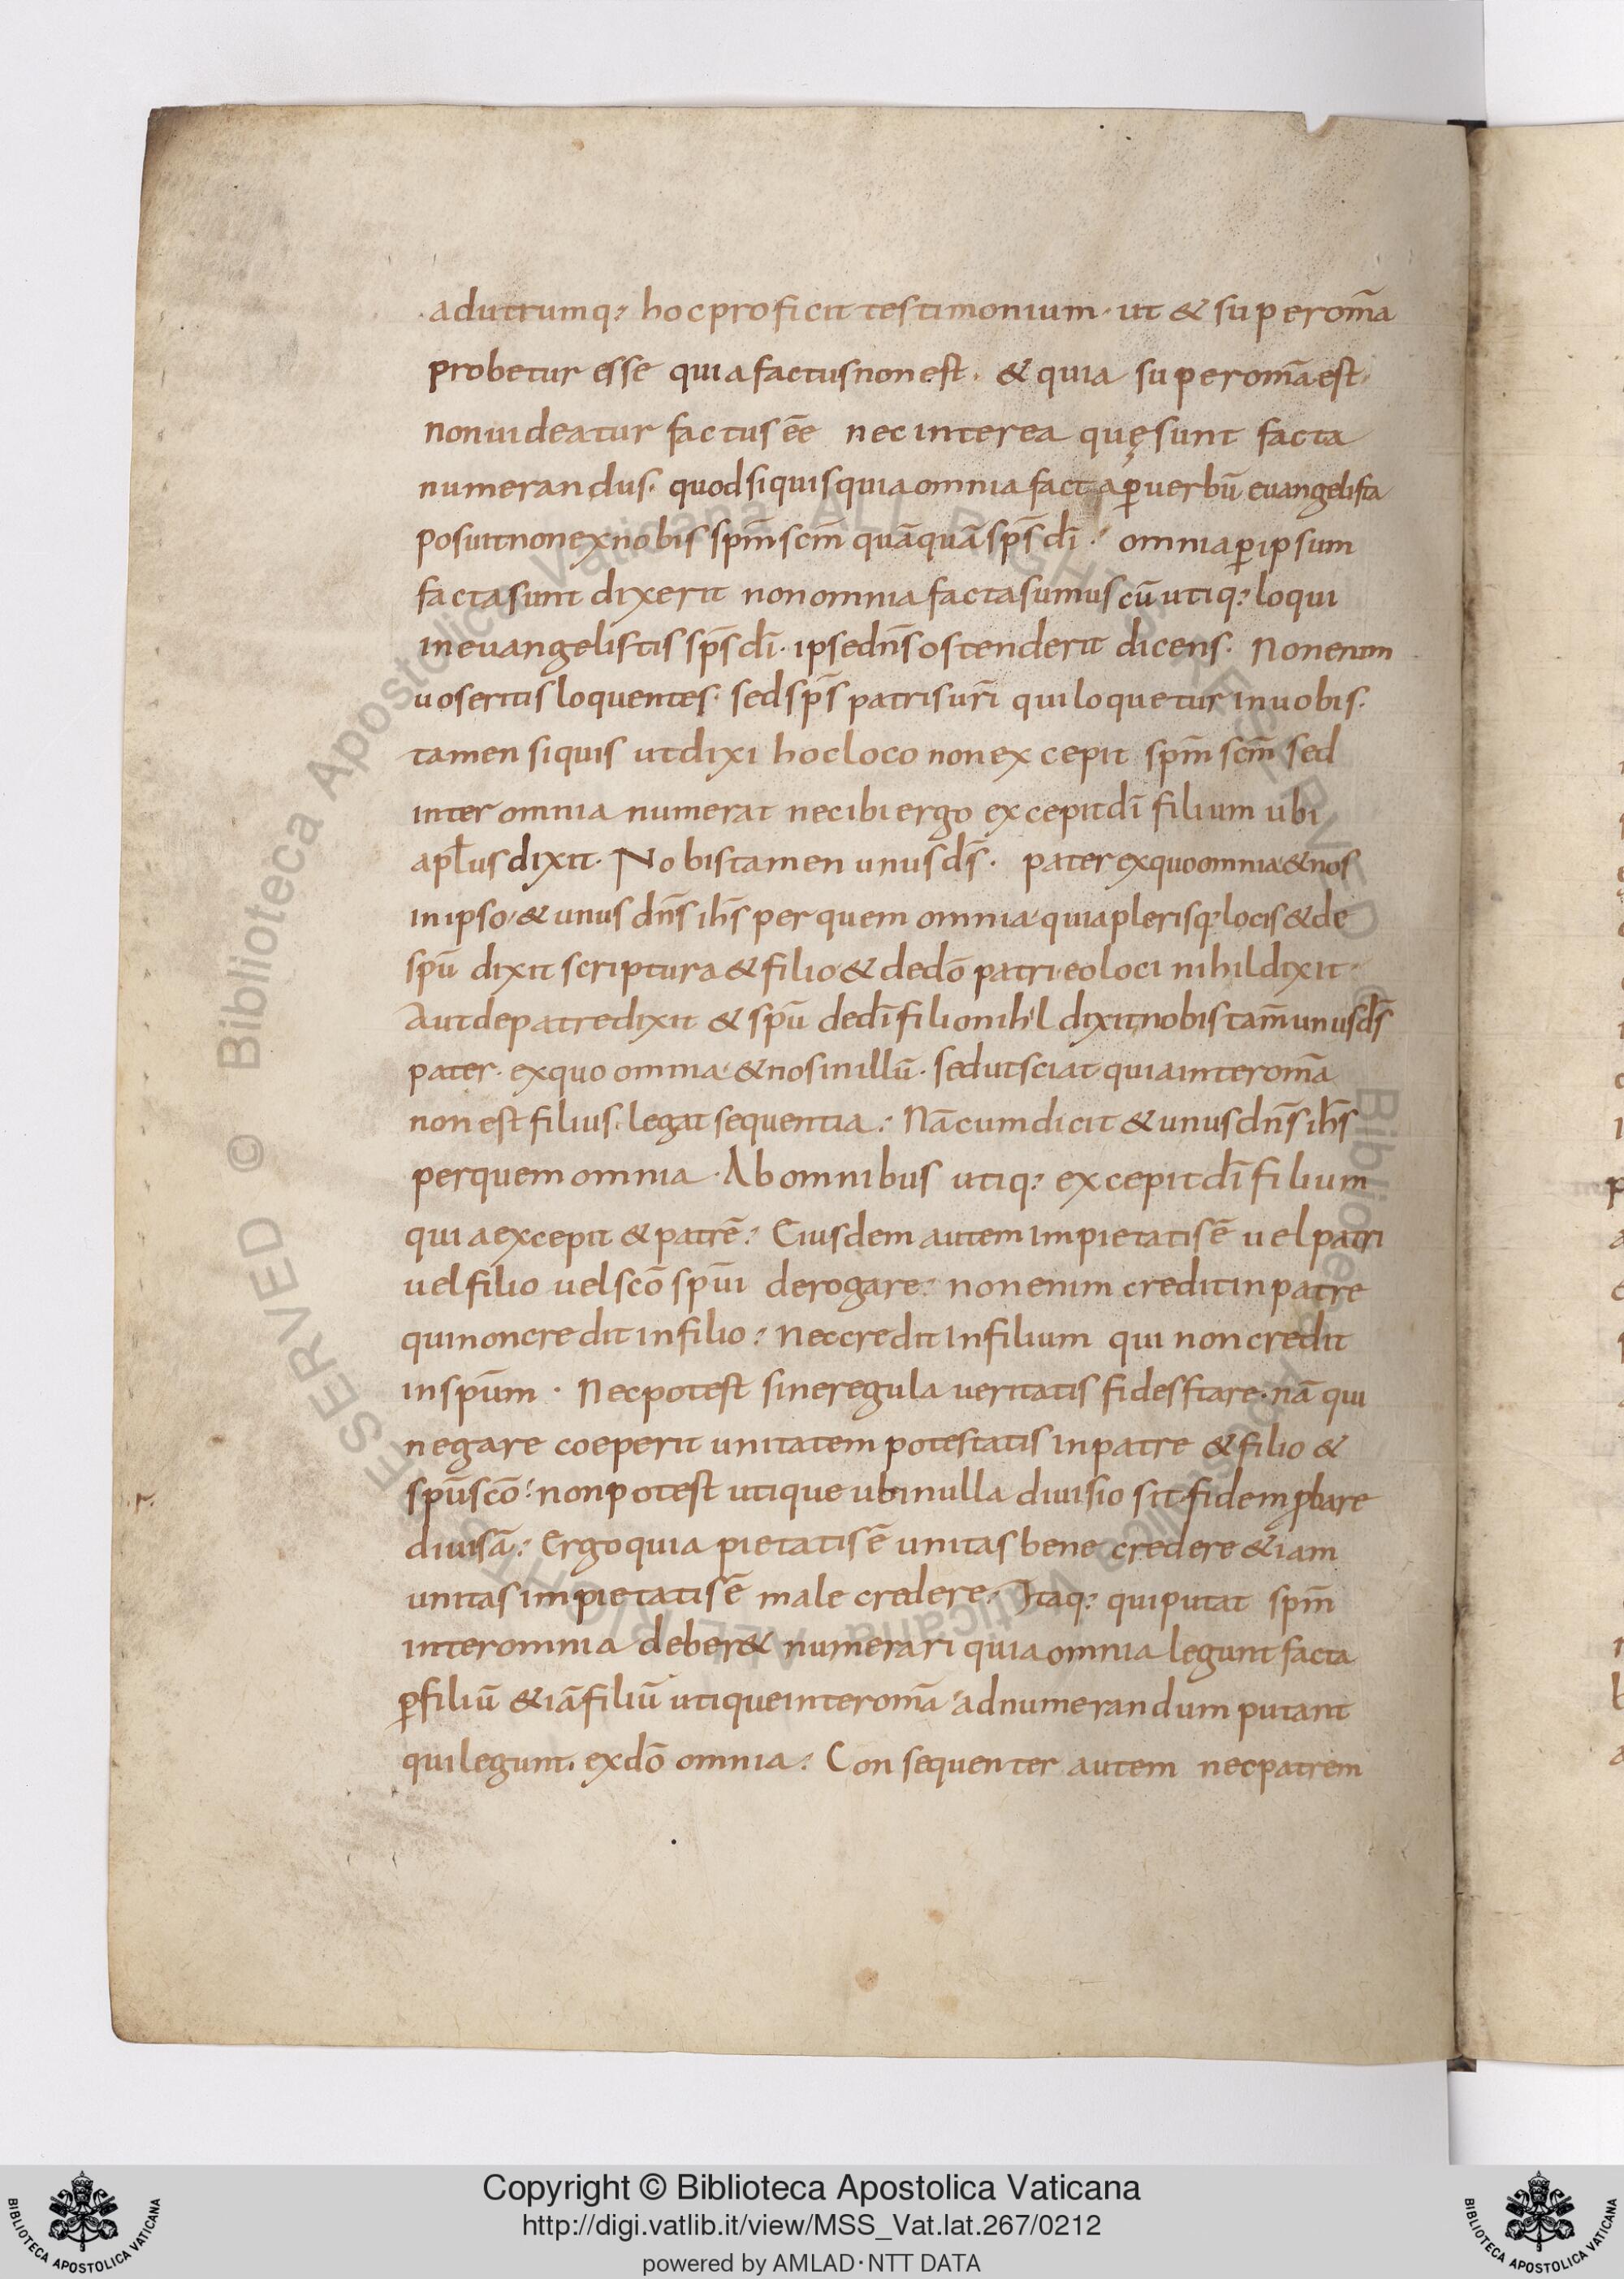 adutrumq; hocproficit testimonium· ut & superom̅a
probetur esse quiafactusnonest· & quia superom̅aest·
nonuideatur factuseē nec interea quęsunt facta
numerandus· quodsiquisquiaomnia facta ꝑuerbū euangelista
posuitnonexnobis spm̅ scm̅ quāquā sps̅ di̅· omniaꝑipsum
factasunt dixerit nonomnia factasumus cū utiq; loqui
ineuangelistis sps̅ di̅· ipsedn̅s ostenderit dicens· Nonenim
uoseritis loquentes· sed sps̅ patrisuri̅ quiloquetur inuobis·
tamen siquis utdixi hocloco nonexcepit spm̅ scm̅ sed
inter omnia numerat necibiergo excepitdi̅ filium ubi
apl̅us dixit· Nobistamen unusds̅· pater exquoomnia &nos
inipso· & unus dn̅s ih̅s per quem omnia· quiaplerisq; locis & de
spu̅ dixit scriptura & filio & dedo̅ patri eoloci nihildixit·
Autdepatredixit & spu̅ dedi̅ filionihil dixitnobis tam̅ unusds̅
pater· exquo omnia &nosinillū· sedutsciat quiainterom̅a
non est filius· legat sequentia; Nācumdicit & unusdn̅s ih̅s
perquemomnia· Abomnibus utiq; excepitdi̅ filium
quiaexcepit & patrē; Eiusdem autem impietatisē uelpatri
uelfilio uelsco̅ spu̅i derogare; nonenim creditinpatre
quinoncredit infilio; neccredit infilium qui noncredit
inspu̅m· Necpotest sineregula ueritatis fidesstare· nā qui
negare coeperit unitatem potestatis inpatre & filio &
spu̅sco̅; nonpotest utique ubinulla diuisio sit· fidem ꝓbare
diuisā; Ergoquia pietatisē unitas bene credere &iam
unitas impietatisē male credere; Itaq; quiputat spm̅
interomnia deber& numerari quiaomnia legunt facta
ꝑfiliū &iāfiliū utiqueinterom̅a adnumerandum putant
quilegunt· exdo̅ omnia; Consequenter autem necpatrem
Copyright © Biblioteca Apostolica Vaticana
http://digi.vatlib.it/view/MSS_Vat.lat.267/0212
powered by AMLAD·NTT DATA